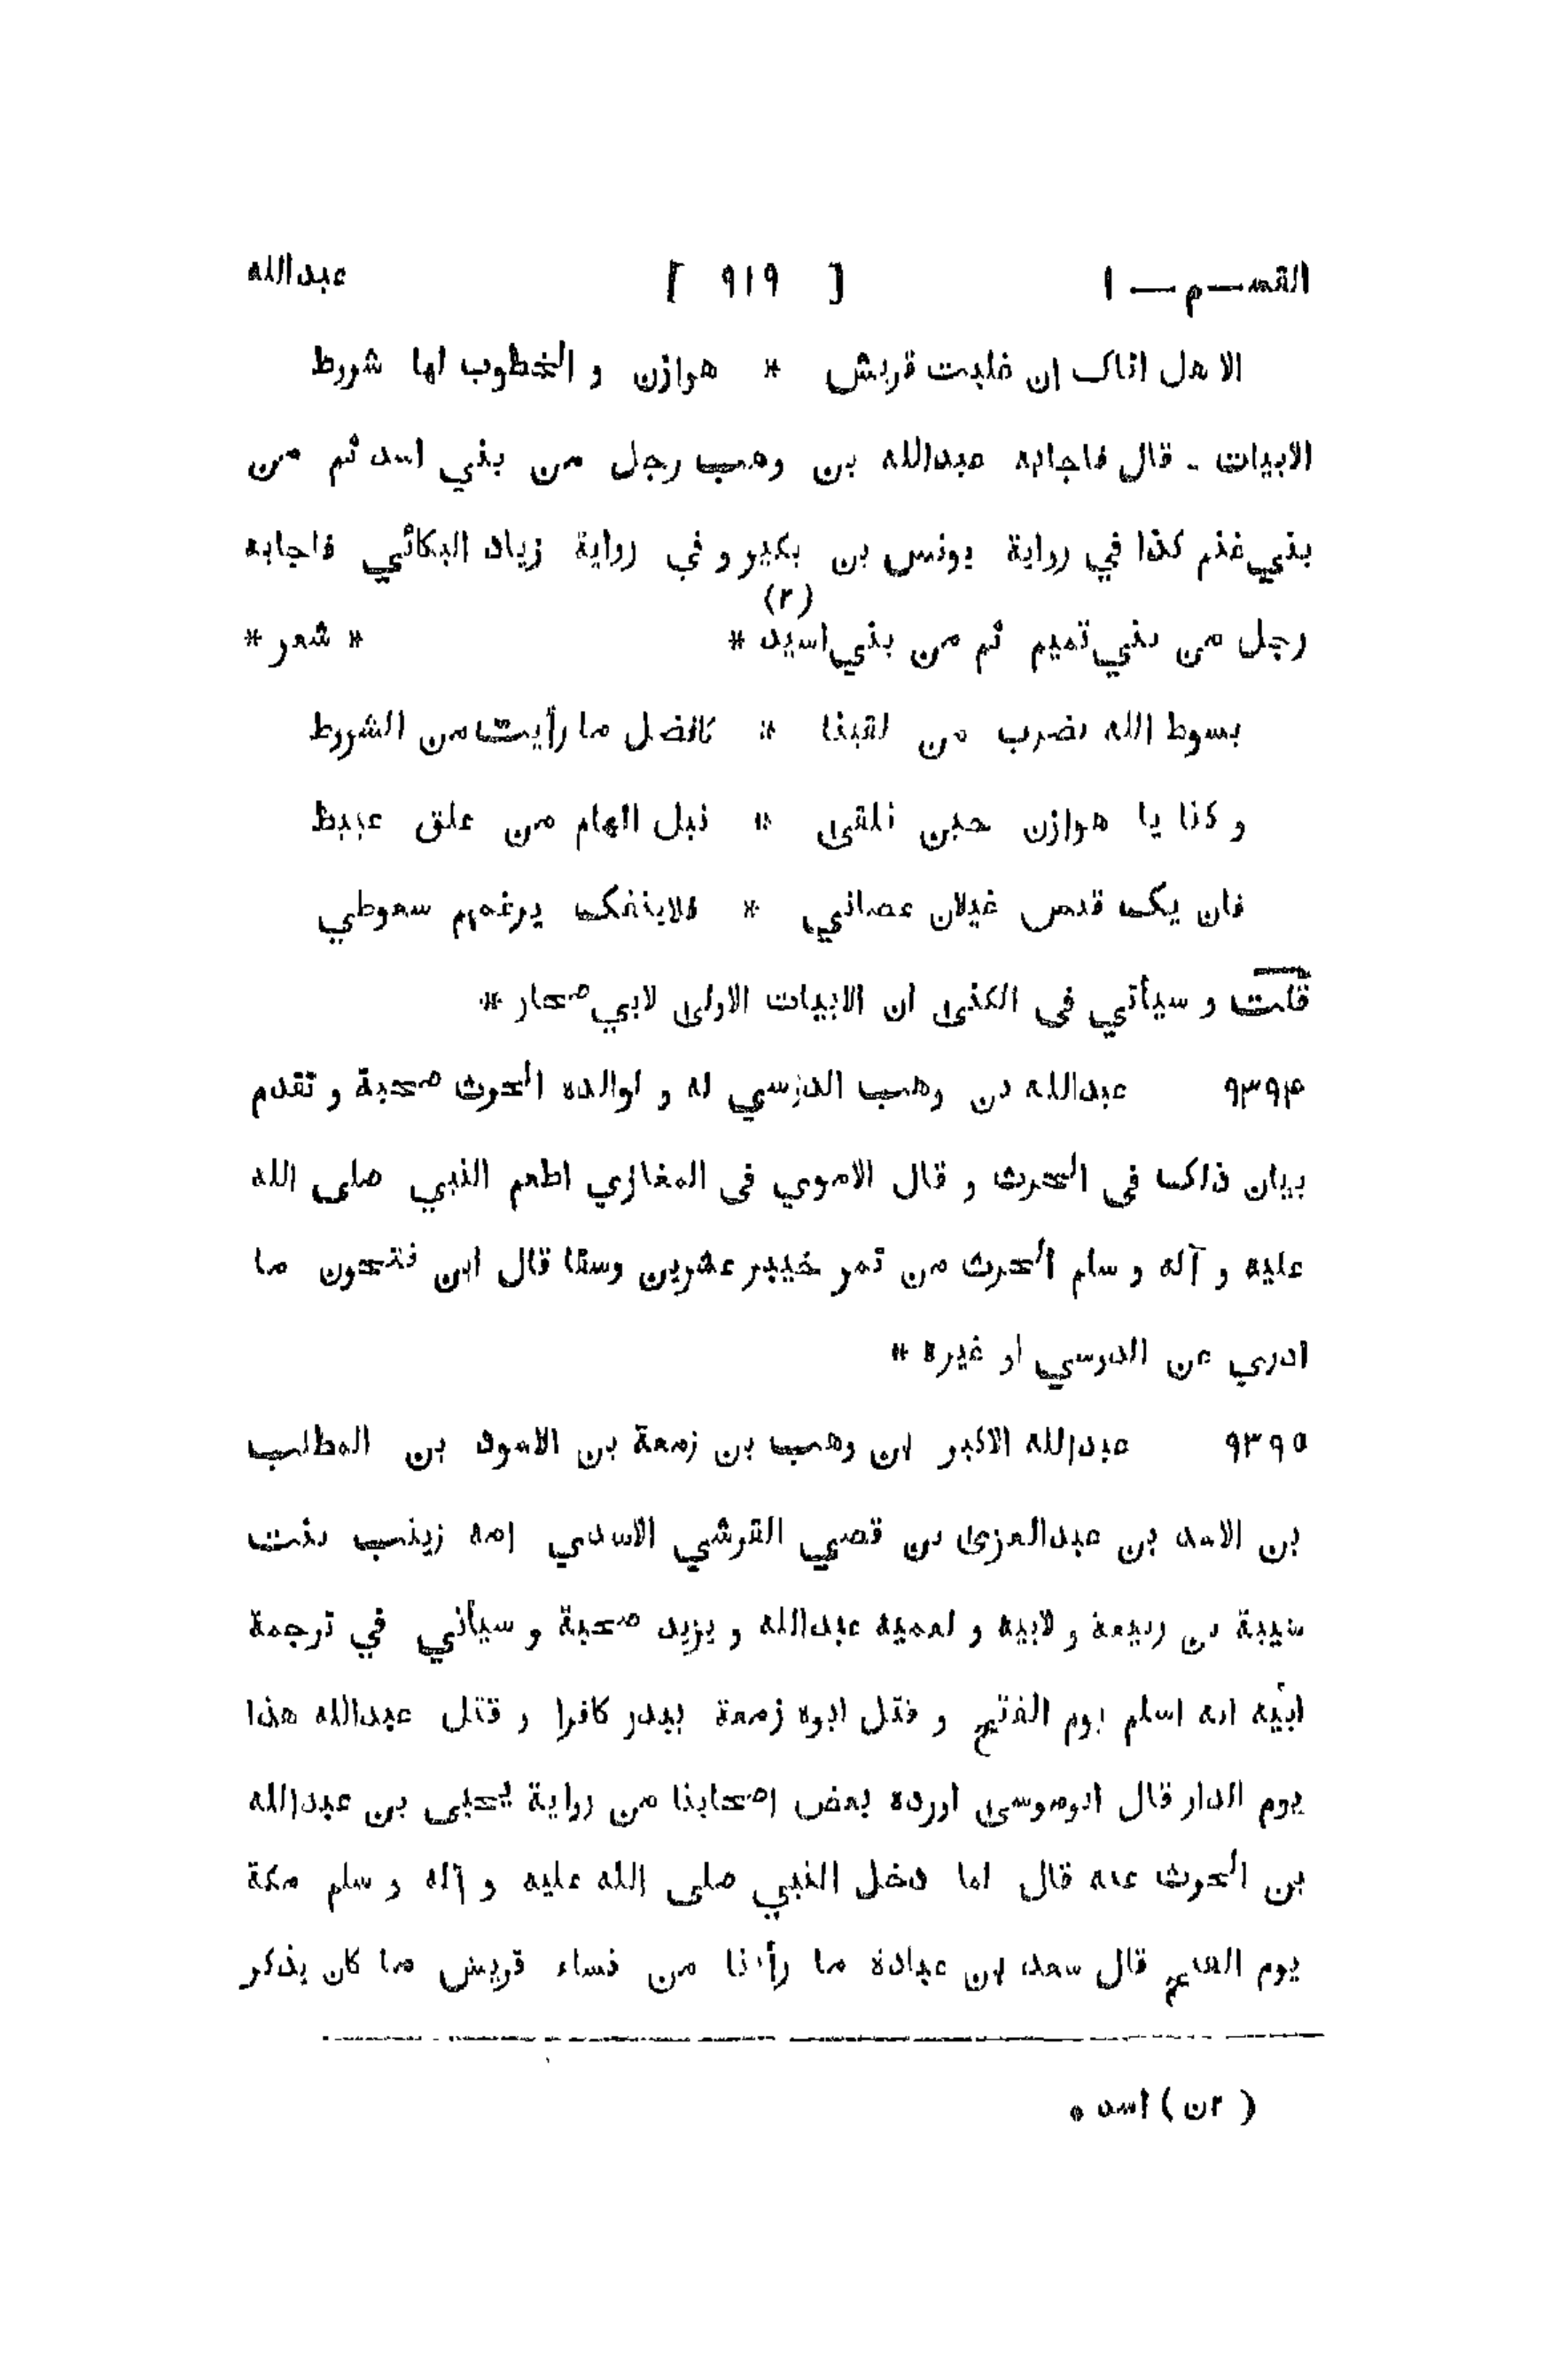 القسم — ١ [ ٩١٩ ] عبدالله
الا هل اتاك ان غلبت قريش * هوازن و الخطوب لها شروط
الابيات - قال فاجابه عبدالله بن وهب رجل من بني اسد ثم من
بني غنم كذا في رواية يونس بن بكير و في رواية زياد البكائي فاجابه
رجل من بني تميم ثم من بني اسيد (٢) * * شعر *
بسوط الله نضرب من لقينا * كافضل ما رأيت من الشروط
و كنا يا هوازن حين نلقى * نبل الهام من علق عبيط
فان يك قيس غيلان عصاني * فلاينفك يرغمهم سعوطي
قلت و سيأتي في الكنى ان الابيات الاولى لابي صحار *
٩٣٩۴ عبدالله بن وهب الدوسي له و لوالده الحرث صحبة و تقدم
بيان ذلك في الحرث و قال الاموي في المغازي اطعم النبي صلى الله
عليه و آله و سلم الحرث من تمر خيبر عشرين وسقا قال ابن فتحون ما
ادري عن الدوسي او غيره *
٩٣٩٥ عبدالله الاكبر ابن وهب بن زمعة بن الاسود بن المطلب
بن الاسد بن عبدالعزى بن قصي القرشي الاسدي امه زينب بنت
شيبة بن ربيعة و لابيه و لعميه عبدالله و يزيد صحبة و سيأتي في ترجمة
ابيه انه اسلم يوم الفتح و قتل ابوه زمعة ببدر كافرا و قتل عبدالله هذا
يوم الدار قال ابوموسى اورده بعض اصحابنا من رواية يحيى بن عبدالله
بن الحرث عنه قال لما دخل النبي صلى الله عليه و آله و سلم مكة
يوم الفتح قال سعد بن عبادة ما رأينا من نساء قريش ما كان يذكر
( ٢ن ) اسد *